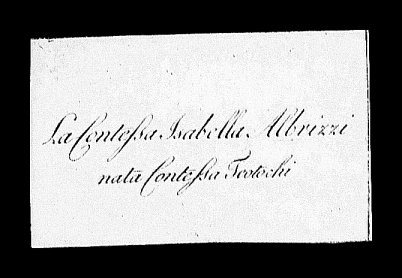 La Conteſsa Isabella Albrizzi
nata Conteſsa Teotochi